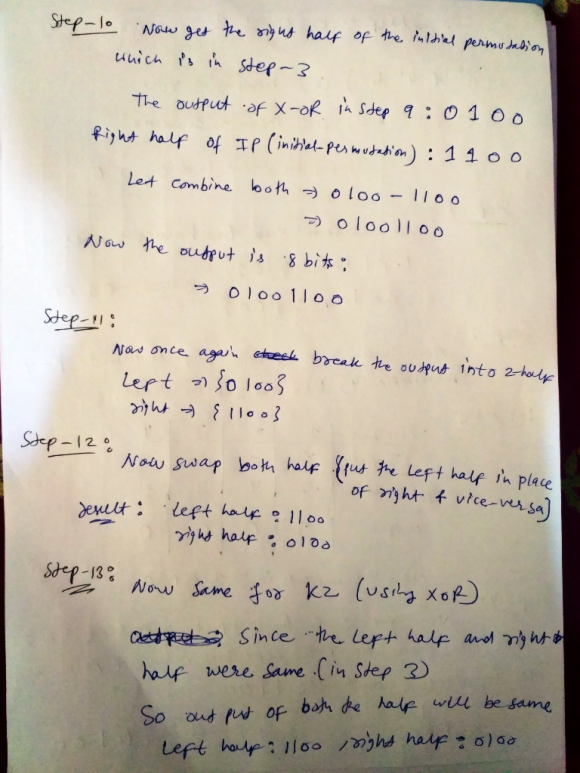 Step-10 Now get the right half of the initial permutation
which is in step-3
The output of X-OR in step 9 : 0 1 0 0
Right half of IP (initial-permutation) : 1 1 0 0
Let combine both ⇒ 0100 - 1100
⇒ 01001100
Now the output is 8 bits:
⇒ 01001100
Step-11:
Now once again check break the output into 2-half
Left ⇒ {0100}
right → {1100}
Step-12:
Now swap both half {put the left half in place
of right & vice-versa}
result: left half : 1100
right half : 0100
Step-13:
Now same for K2 (using XOR)
output: Since the left half and right
half were same. (in step 3)
So out put of both the half will be same
left half : 1100 , right half : 0100